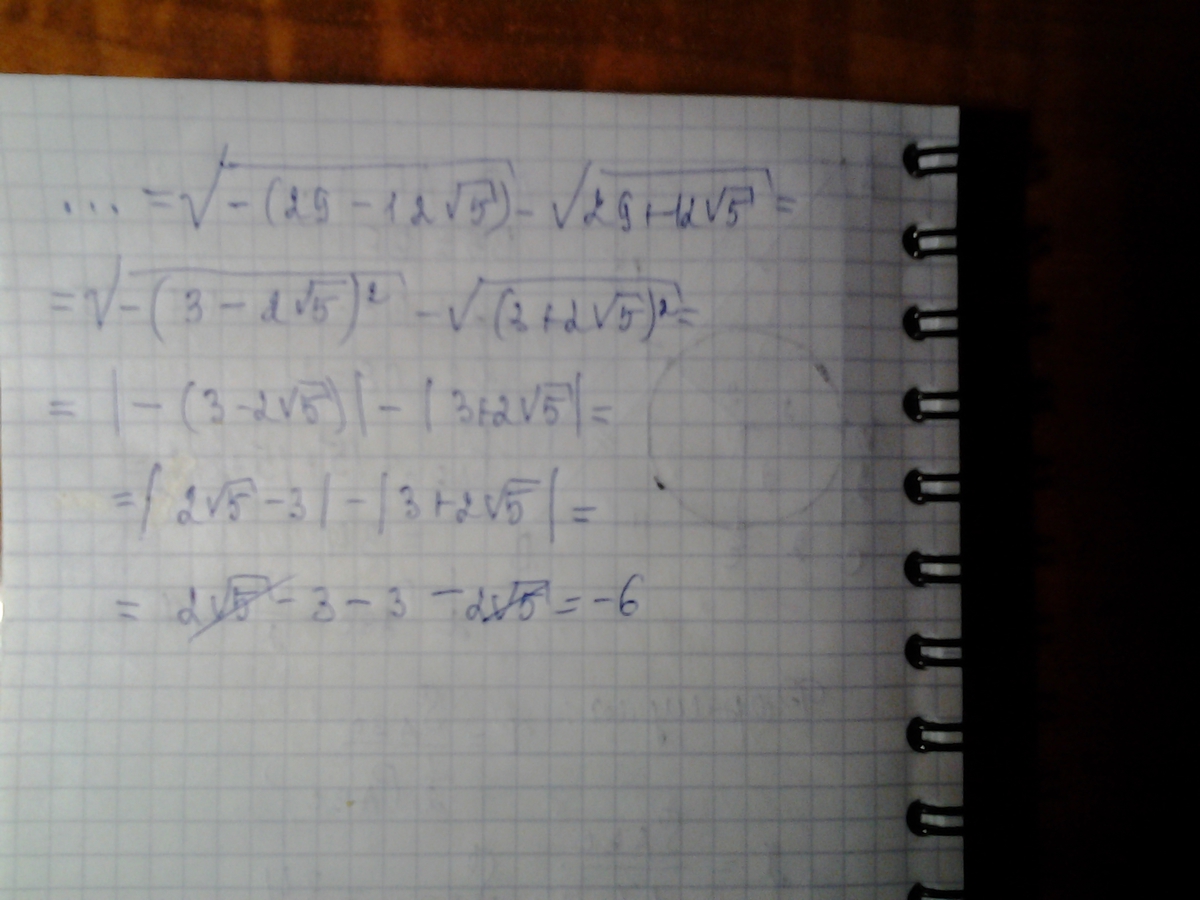 ... = √(-(29 - 12√5)) - √(29 + 12√5) =
= √(-(3 - 2√5)²) - √((3 + 2√5)²) =
= |-(3 - 2√5)| - |3 + 2√5| =
= |2√5 - 3| - |3 + 2√5| =
= 2√5 - 3 - 3 - 2√5 = -6